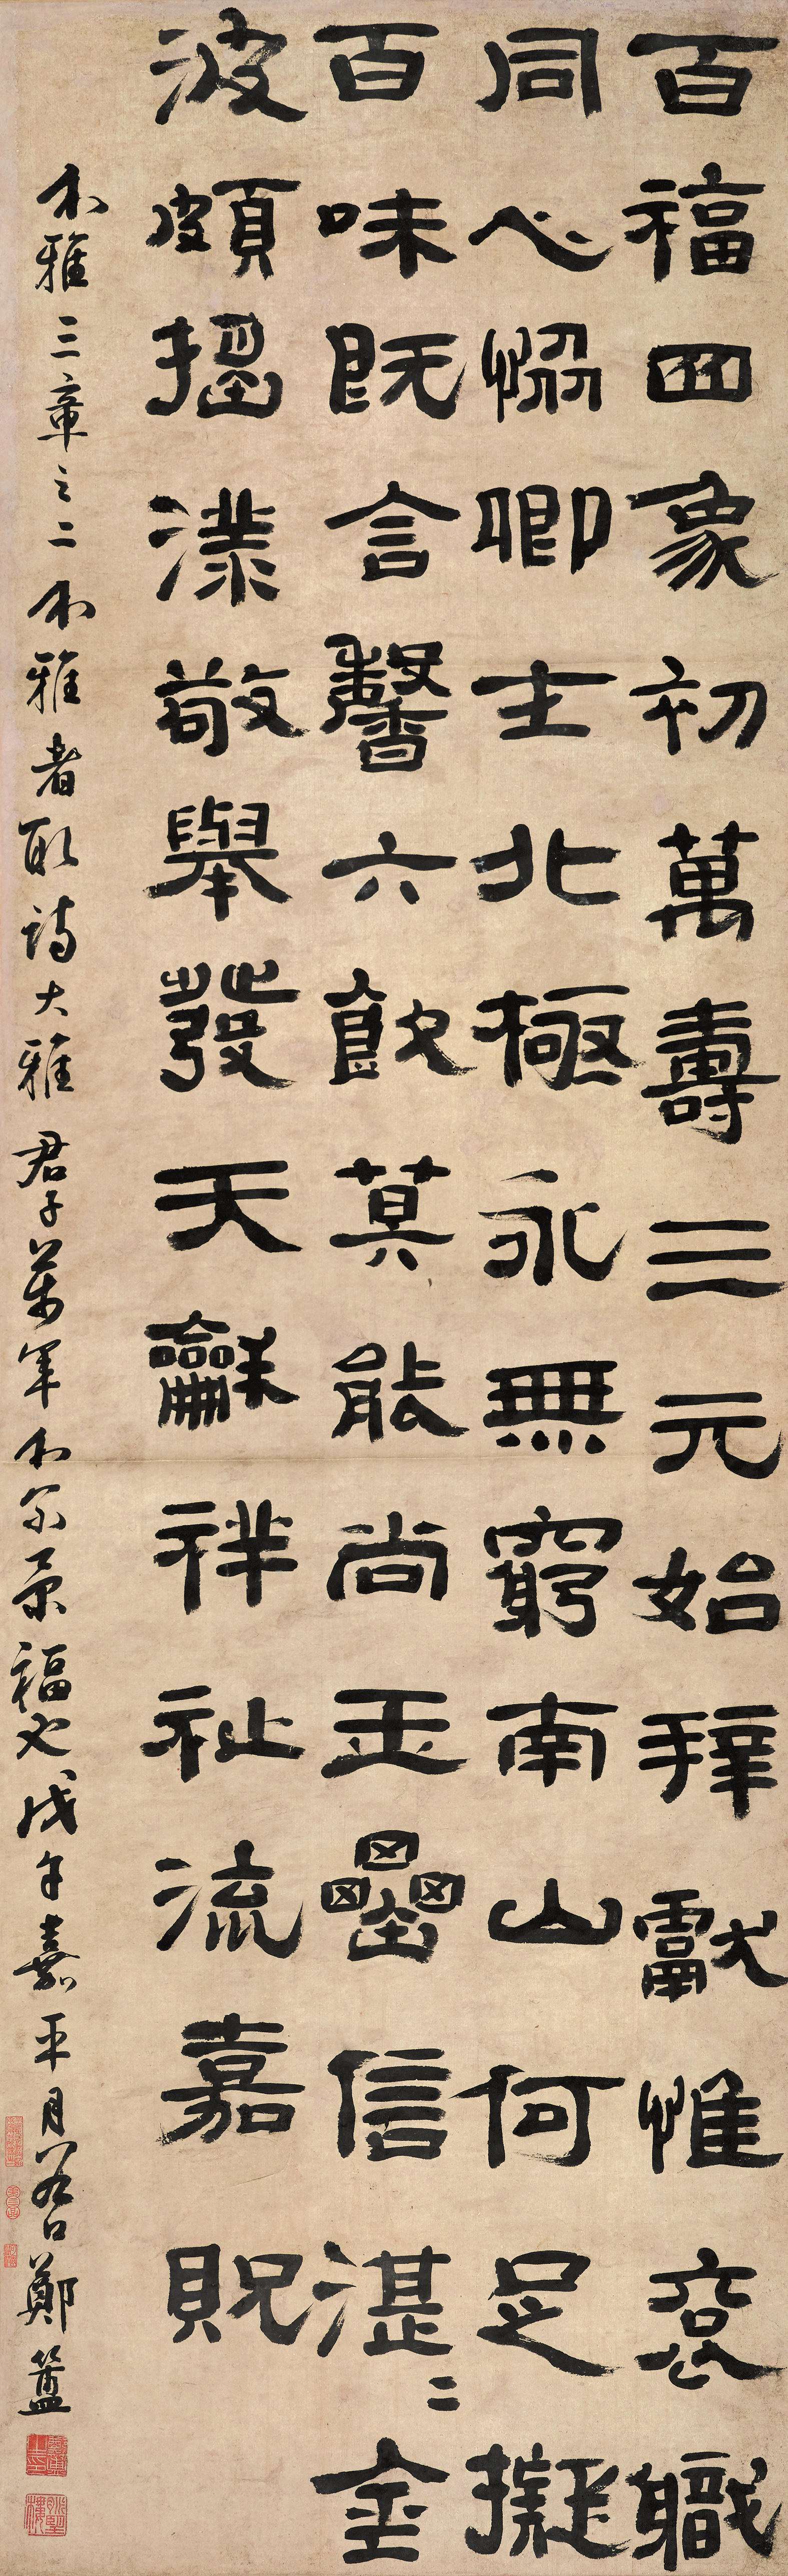 百福四象初萬壽三元始拜獻惟袞職
同心協卿士北極永無窮南山何足擬
百味既言馨六飲莫能尚玉罍信湛二金
波頗搖漾敬舉發天龢祥祉流嘉貺
介雅三章之二介雅者取詩大雅君子萬年介爾景福也戊午嘉平月谷口鄭簠